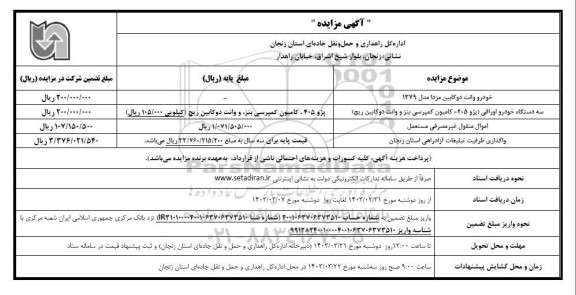 " آگهی مزایده "
اداره‌کل راهداری و حمل‌ونقل جاده‌ای استان زنجان
نشانی: زنجان، بلوار شیخ اشراق، خیابان راهدار
موضوع مزایده	مبلغ پایه (ریال)	مبلغ تضمین شرکت در مزایده (ریال)
خودرو وانت دوکابین مزدا مدل ۱۳۷۹	-	۲۰۰/۰۰۰/۰۰۰ ریال
سه دستگاه خودرو اوراقی (پژو ۴۰۵- کامیون کمپرسی بنز و وانت دوکابین ریچ)	پژو ۴۰۵ ، کامیون کمپرسی بنز، و وانت دوکابین ریچ (کیلویی ۱۰۵/۰۰۰ ریال)	۲۰۰/۰۰۰/۰۰۰ ریال
اموال منقول غیرمصرفی مستعمل	۱/۰۷۱/۵۰۵/۰۰۰ ریال	۱۰۷/۱۵۰/۵۰۰ ریال
واگذاری ظرفیت تبلیغات آزادراهی استان زنجان	قیمت پایه برای سه سال به مبلغ ۲۳/۷۶۰/۲۱۵/۲۰۰ ریال می‌باشد.	۳/۳۷۶/۰۲۱/۵۴۰ ریال
(پرداخت هزینه آگهی، کلیه کسورات و هزینه‌های احتمالی ناشی از قرارداد، به‌عهده برنده مزایده می‌باشد).
نحوه دریافت اسناد	صرفاً از طریق سامانه تدارکات الکترونیکی دولت به نشانی اینترنتی www.setadiran.ir
زمان دریافت اسناد	از روز دوشنبه مورخ ۱۴۰۳/۰۲/۳۱ لغایت روز دوشنبه مورخ ۱۴۰۳/۰۳/۰۷
نحوه واریز مبلغ تضمین	واریز مبلغ تضمین به شماره حساب نزد بانک مرکزی جمهوری اسلامی ایران شعبه مرکزی با
شناسه واریز
مهلت و محل تحویل	تا ساعت ۱۲:۰۰ روز دوشنبه مورخ ۱۴۰۳/۰۳/۲۱ (دبیرخانه اداره‌کل راهداری و حمل و نقل جاده‌ای استان زنجان) و ثبت پیشنهاد قیمت در سامانه ستاد
زمان و محل گشایش پیشنهادات	ساعت ۹:۰۰ صبح روز سه‌شنبه مورخ ۱۴۰۳/۰۳/۲۲ در محل اداره‌کل راهداری و حمل و نقل جاده‌ای استان زنجان